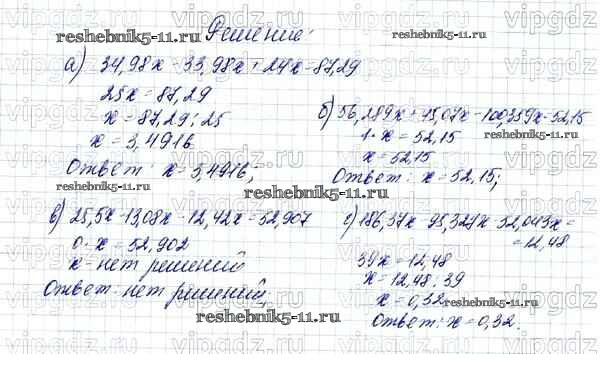 Решение:
а) 34,98x - 33,98x + 24x = 87,29
25x = 87,29
x = 87,29 : 25
x = 3,4916
Ответ: x = 3,4916;
б) 56,289x + 45,07x - 100,359x = 52,15
1 · x = 52,15
x = 52,15
Ответ: x = 52,15;
в) 25,5x - 13,08x - 12,42x = 52,907
0 · x = 52,902
x - нет решений
Ответ: нет решений,
с) 186,37x - 95,327x - 52,043x =
= 12,48
39x = 12,48
x = 12,48 : 39
x = 0,32
Ответ: x = 0,32.
reshebnik5-11.ru
reshebnik5-11.ru
reshebnik5-11.ru
reshebnik5-11.ru
reshebnik5-11.ru
reshebnik5-11.ru
reshebnik5-11.ru
vipgdz